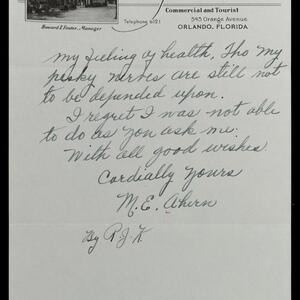 Commercial and Tourist
Telephone 6121
545 Orange Avenue
Howard I. Foster, Manager
ORLANDO, FLORIDA
my feeling of health, Tho my
pesky nerves are still not
to be depended upon.
I regret I was not able
to do as you ask me.
With all good wishes
Cordially Yours
M. E. Ahern
By P. J. K.